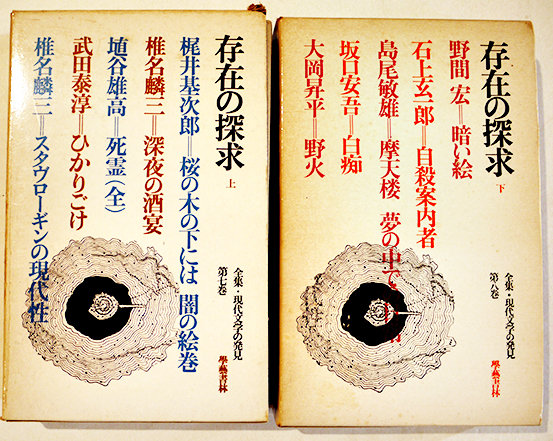 存在の探求 上
梶井基次郎＝桜の木の下には 闇の絵巻
椎名麟三＝深夜の酒宴
埴谷雄高＝死霊(全)
武田泰淳＝ひかりごけ
椎名麟三＝スタヴローギンの現代性
全集・現代文学の発見
第七巻
學藝書林
存在の探求 下
野間 宏＝暗い絵
石上玄一郎＝自殺案内者
島尾敏雄＝摩天楼 夢の中で
坂口安吾＝白痴
大岡昇平＝野火
全集・現代文学の発見
第八巻
學藝書林